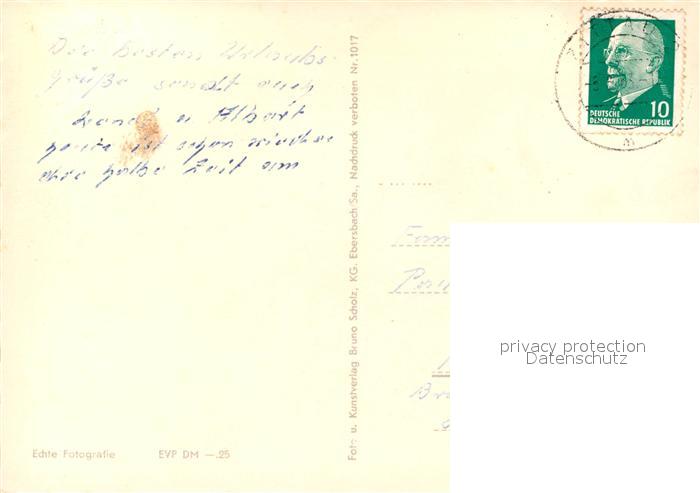 Die besten Urlaubs-
grüße sendet euch
u
heute ist schon wieder
die halbe Zeit um
Foto u. Kunstverlag Bruno Scholz, KG. Ebersbach/Sa., Nachdruck verboten Nr.1017
10
DEUTSCHE
DEMOKRATISCHE REPUBLIK
Fam
privacy protection
Datenschutz
Echte Fotografie EVP DM —.25